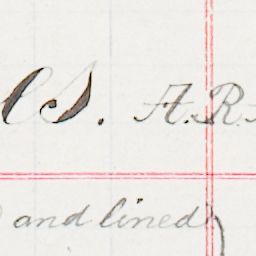 CS. A.R.
and lined)